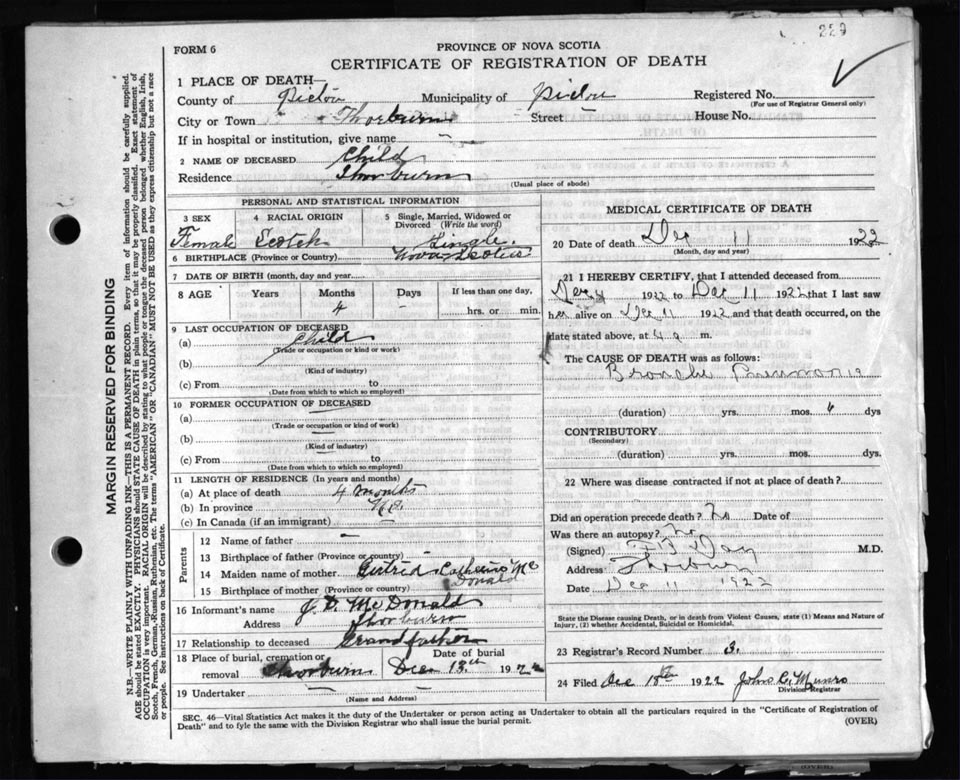 229
FORM 6
PROVINCE OF NOVA SCOTIA
CERTIFICATE OF REGISTRATION OF DEATH
1 PLACE OF DEATH—
County of Pictou Municipality of Pictou Registered No.
(For use of Registrar General only)
City or Town Thorburn Street House No.
If in hospital or institution, give name –
2 NAME OF DECEASED Child
Residence Thorburn
(Usual place of abode)
PERSONAL AND STATISTICAL INFORMATION
3 SEX 4 RACIAL ORIGIN 5 Single, Married, Widowed or Divorced (Write the word)
Female Scotch Single
6 BIRTHPLACE (Province or Country) Nova Scotia
7 DATE OF BIRTH (month, day and year)
8 AGE Years Months Days If less than one day,
4 – hrs. or min.
9 LAST OCCUPATION OF DECEASED
(a) Child
(Trade or occupation or kind of work)
(b)
(Kind of industry)
(c) From to
(Date from which to which so employed)
10 FORMER OCCUPATION OF DECEASED
(a)
(Trade or occupation or kind of work)
(b)
(Kind of industry)
(c) From to
(Date from which to which so employed)
11 LENGTH OF RESIDENCE (In years and months)
(a) At place of death 4 months
(b) In province
(c) In Canada (if an immigrant) –
Parents
12 Name of father –
13 Birthplace of father (Province or country)
14 Maiden name of mother Gertrid Catherine Mc Donald
15 Birthplace of mother (Province or country)
16 Informant's name J. D. McDonald
Address Thorburn
17 Relationship to deceased Grandfather
18 Place of burial, cremation or removal Date of burial
Thorburn Dec 13th 1922
19 Undertaker
(Name and Address)
MEDICAL CERTIFICATE OF DEATH
20 Date of death Dec 11 1922
(Month, day and year)
21 I HEREBY CERTIFY, that I attended deceased from
Dec 1922 to Dec 11 1922 that I last saw
her alive on Dec 11 1922 and that death occurred, on the
date stated above, at 4 a m.
The CAUSE OF DEATH was as follows:
Broncho Pneumonia
(duration) yrs. mos. 6 dys
CONTRIBUTORY
(Secondary)
(duration) yrs. mos. dys
22 Where was disease contracted if not at place of death?
Did an operation precede death? No Date of
Was there an autopsy? No
(Signed) Day M.D.
Address Thorburn
Date Dec 11 1922
State the Disease causing Death, or in death from Violent Causes, state (1) Means and Nature of Injury, (2) whether Accidental, Suicidal or Homicidal.
23 Registrar's Record Number 3.
24 Filed Dec 18th 1922 John C. Munro
Division Registrar
SEC. 46—Vital Statistics Act makes it the duty of the Undertaker or person acting as Undertaker to obtain all the particulars required in the "Certificate of Registration of Death" and to fyle the same with the Division Registrar who shall issue the burial permit.
(OVER)
MARGIN RESERVED FOR BINDING
N.B.—WRITE PLAINLY WITH UNFADING INK—THIS IS A PERMANENT RECORD. Every item of information should be carefully supplied.
AGE should be stated EXACTLY. PHYSICIANS should STATE CAUSE OF DEATH in plain terms, so that it may be properly classified. Exact statement of
OCCUPATION is very important. RACIAL ORIGIN will be described by stating to what people or tongue the deceased person belonged whether English, Irish,
Scotch, French, German, Russian, Ruthenian, etc. The terms "AMERICAN" OR "CANADIAN" MUST NOT BE USED as they express citizenship but not a race
or people. See instructions on back of Certificate.
(OVER)